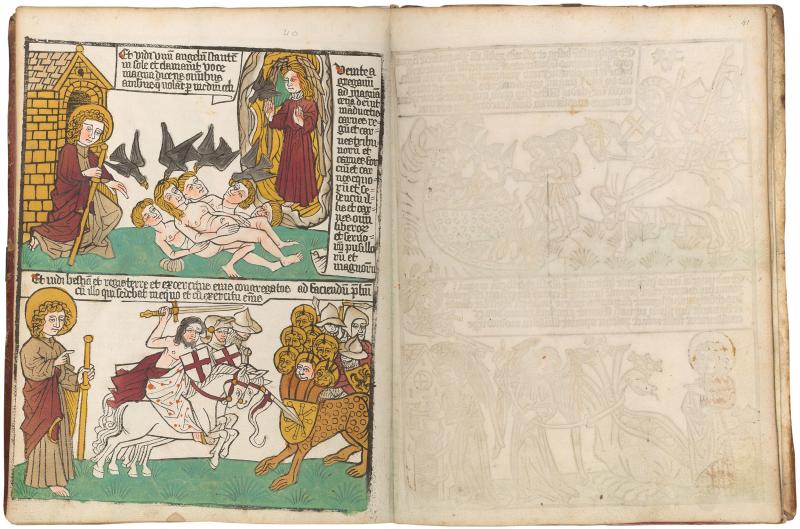 40
41
Et vidi vnū angelū stantē
in sole et clamauit voce
magna dicens omībus
auibus q volāt p mediū celi
Venite a
gregami
ad magnā
cenā dei ut
māducetis
carnes re
gū et car
nes tribu
norū et
carnes for
ciū et car
nes equo
rū et se
denciū il
lis et car
nes oīm
liberoꝝ
et seruo
rū pusillo
rū et
magnorū
Et vidi bestiā et reges terre et exercitus eius congregatos ad faciendū pliū
cū illo qui sedebat in equo et cū exercitu eius